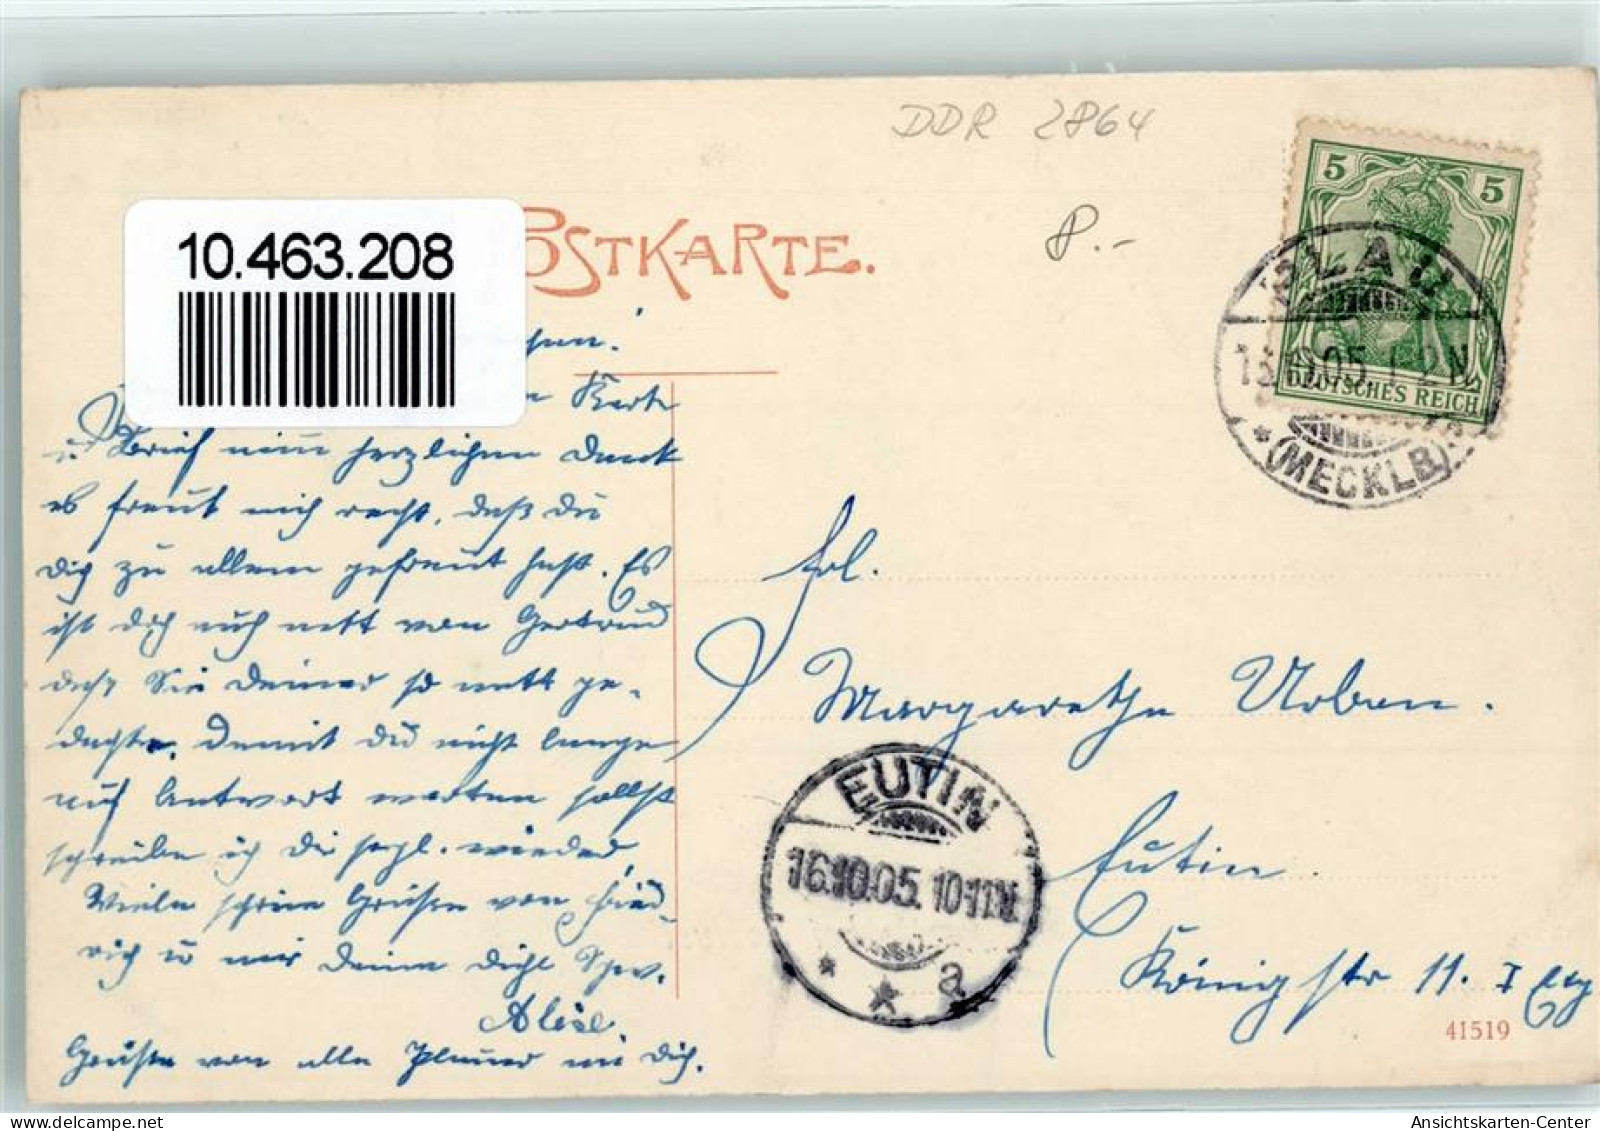 DDR 2864
8.-
10.463.208
POSTKARTE.
5 5
DEUTSCHES REICH
PLAU
10.05. 1-2N
(MECKLB)
Karte
u. Brief meinen herzlichen Dank
es freut mich recht, daß du
dich zu allem gefreut hast. Es
ist doch auch nett von Gertrud
daß Sie Deiner so nett ge-
dachte. Damit Du nicht lange
auf Antwort warten sollst
schreibe ich dir sogl. wieder.
Viele schöne Grüße von Fried-
rich u mir Deine Dich
Grüße von alle Plauer an Dich.
Frl.
Margarethe Urban.
EUTIN
16.10.05. 10-11N.
a
Eutin.
Königstr 11. I Etg
41519
Ansichtskarten-Center